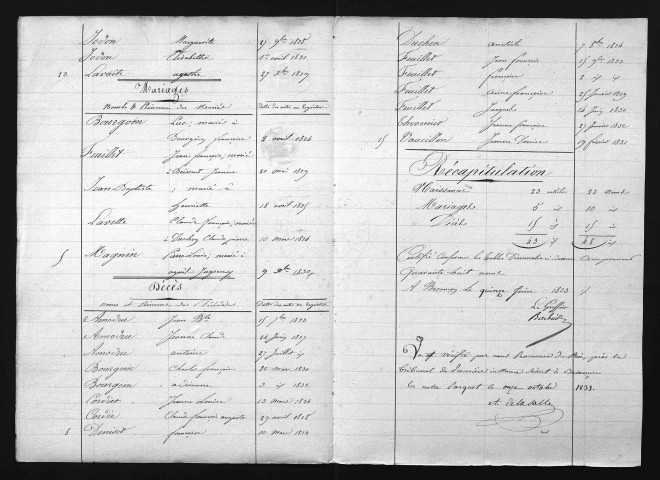 Jodon Marguerite 27 9bre 1828
Jodon Elisabeth 1er avril 1831
23 Lavaite agathe 27 Xbre 1829
Mariages
Noms & Prénoms des Mariés Dates des actes au registre
Bourgoin Luc ; marié à
françoise 2 avril 1824
Feuillet Jean françois, marié
à Jeanne 20 mai 1829
Jean Baptiste ; marié à
henriette 18 avril 1825
Lavette Claude françois, marié
à Duchon Claude pierre 10 mars 1824
5 Magnin Pierre Louis ; marié à
9 Xbre 1830
Décès
noms et Prénoms des Décédés Dates des actes au registre
Amodru Jean Bte 15 7bre 1823
Amodru Jeanne Claude 26 Juin 1827
Amodru antoine 27 Juillet id
Bourgoin Charles françois 20 mai 1830
Bourgoin adrienne 3 id 1832
Cordier Jeanne Louise 13 mars 1824
Cordier Claude françois auguste 29 avril 1828
8 Deniset françoise 10 mars 1824
Duchon anatole 7 8bre 1824
Feuillet Jean francois 15 9bre 1822
Feuillet françoise 2 id id
Feuillet anne françoise 25 février 1829
Feuillet Jacques 24 Juin 1830
Jeanne françoise 27 Janvier 1832
15 Vaucillon Jeanne Denise 19 février 1831
Récapitulation
Naissances 23 articles 23 noms
Mariages 5 id 10 id
Décès 15 id 15 id
43 id 48 id
Certifié Conforme la Table Décennale ci dessus Comprenant
quarante huit noms
A le quinze Juin 1833
Le Greffier
Vu et vérifié par nous Procureur du Roi, près le
Tribunal de Première instance séant à
en notre Parquet le onze octobre 1833.